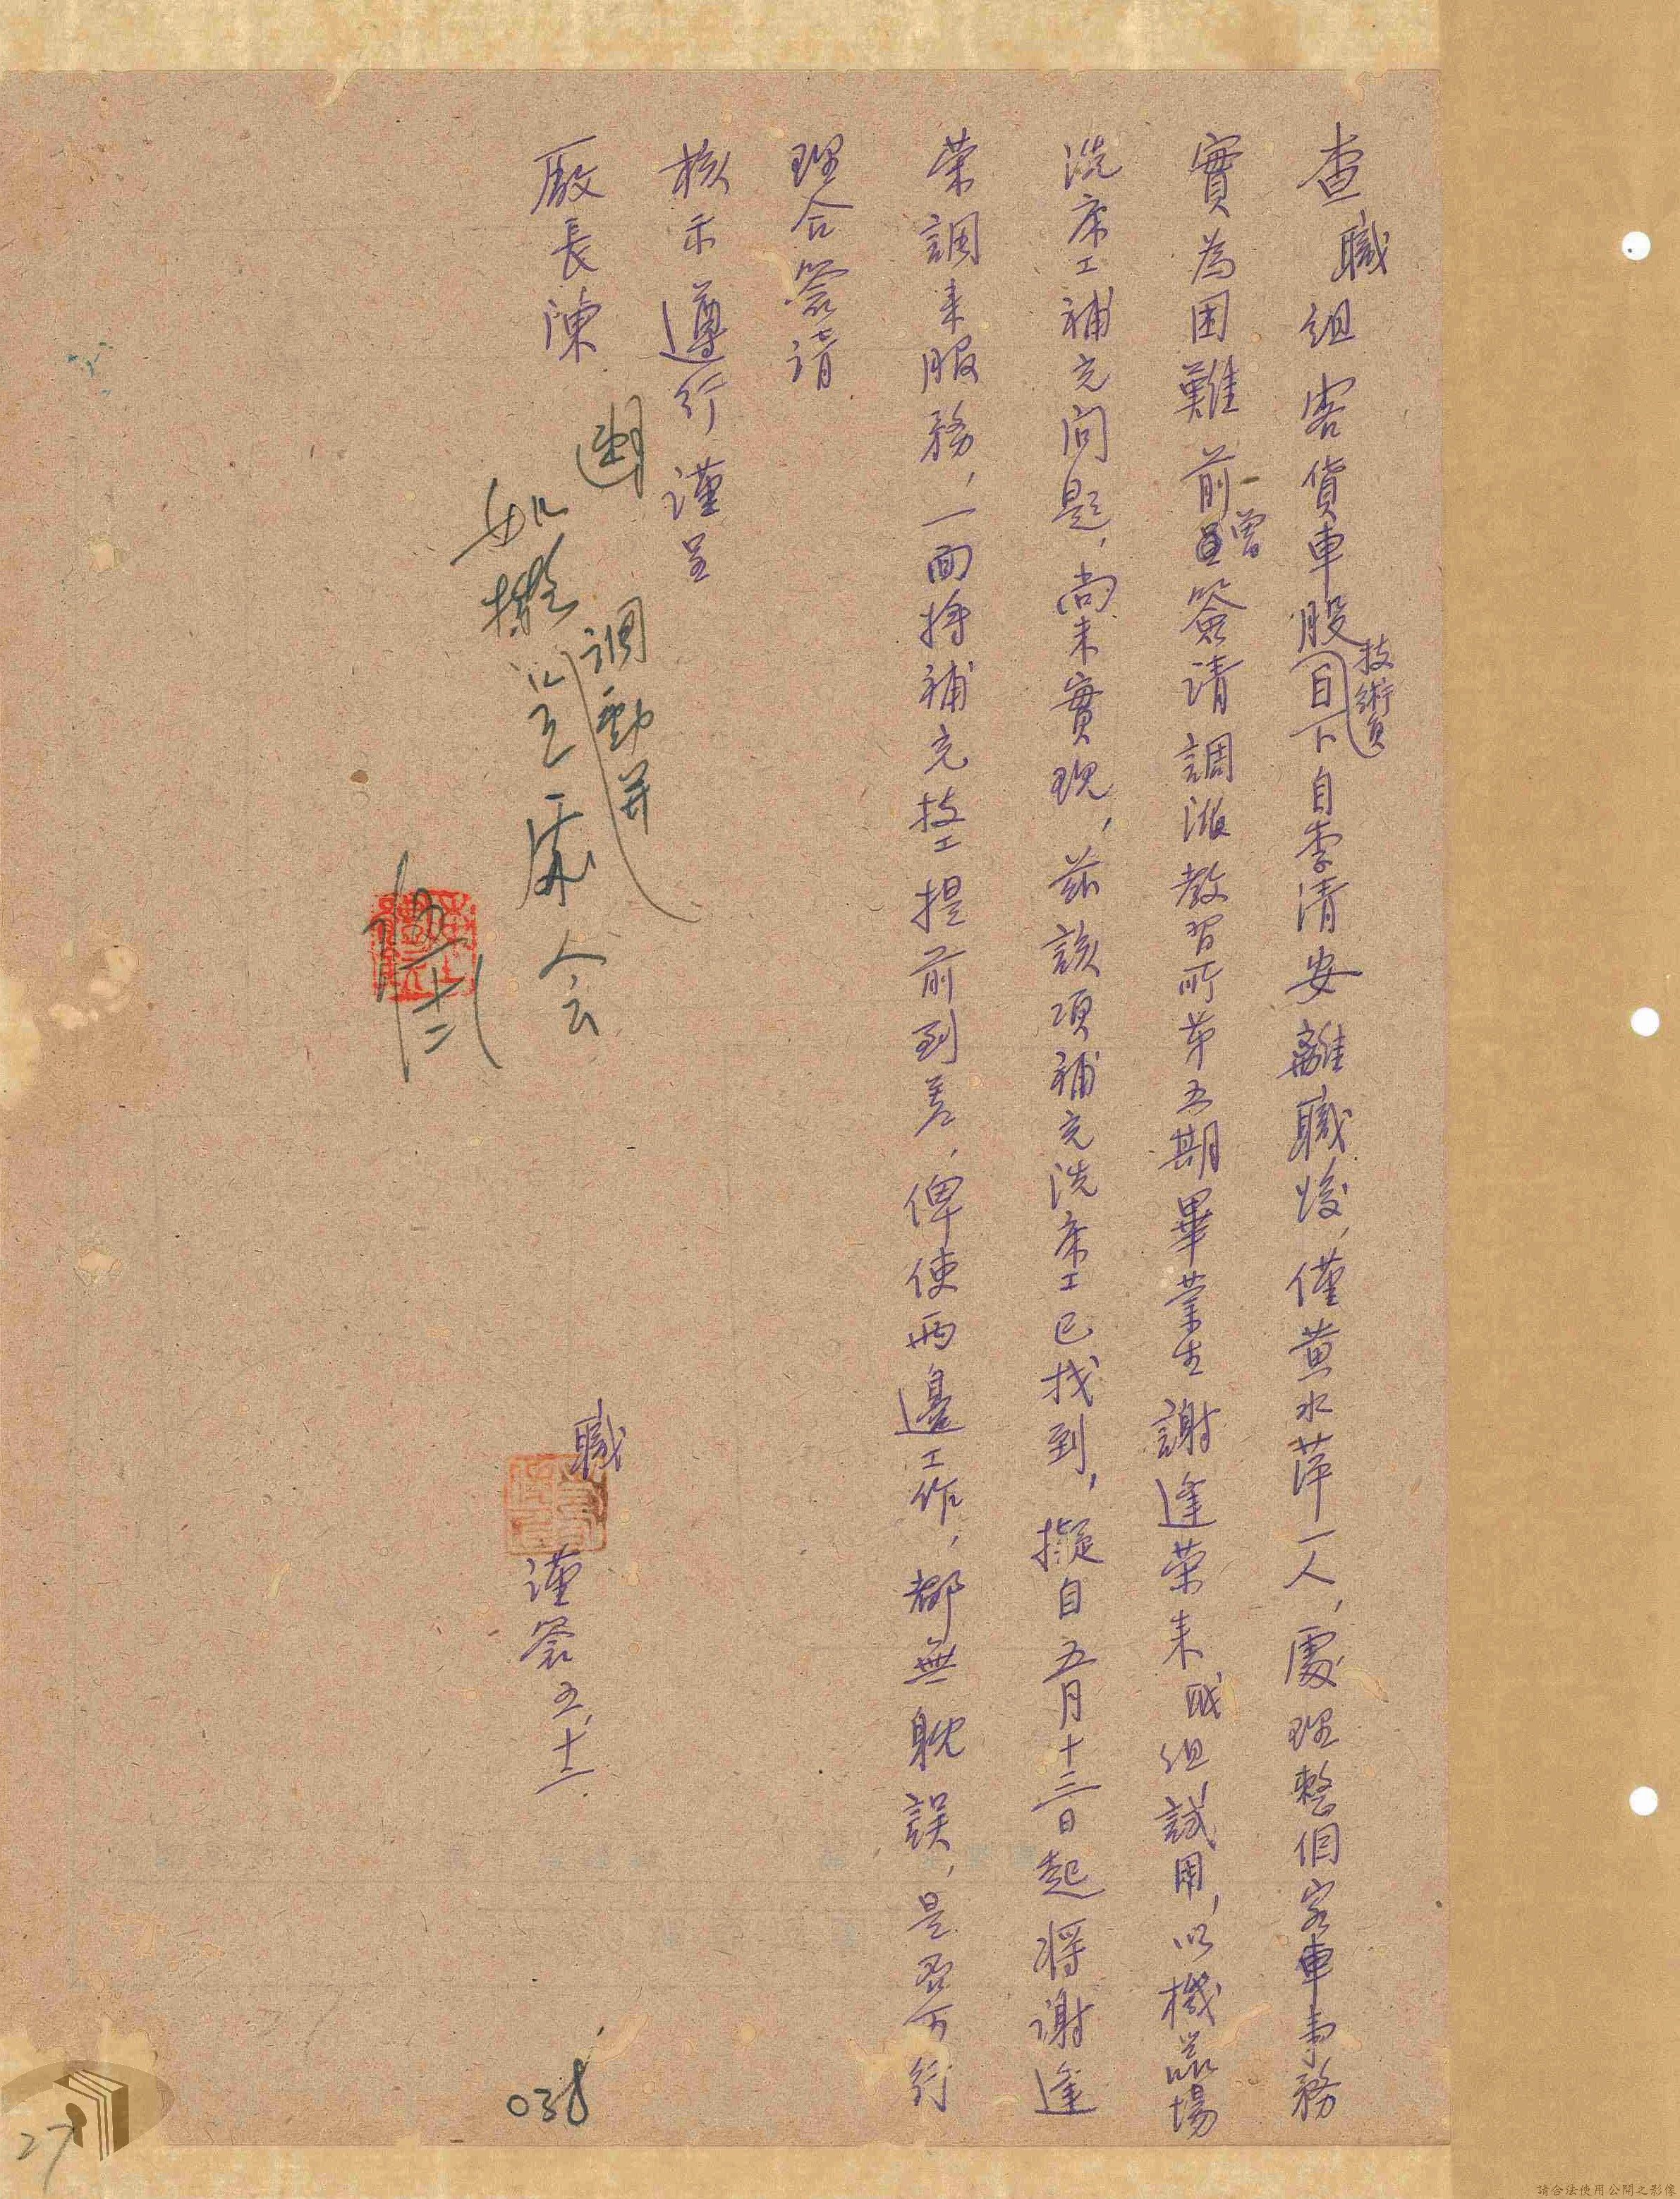 查職組客貨車股技術員目下自李清安離職後，僅黃水萍一人，處理整個客車事務
實為困難前曾簽請調派教習所第五期畢業生謝逢荣來職組試用，以機器場
洗床工補充问題，尚未實現，茲該項補充洗床工已找到，擬自五月十三日起將謝逢
荣調来服務，一面將補充技工提前到差，俾使兩邊工作，都無躭誤，是否可行
理合簽請
核示遵行謹呈
廠長陳
職
謹簽 五、十二
調動并
如擬
人会
038
27
請合法使用公開之影像